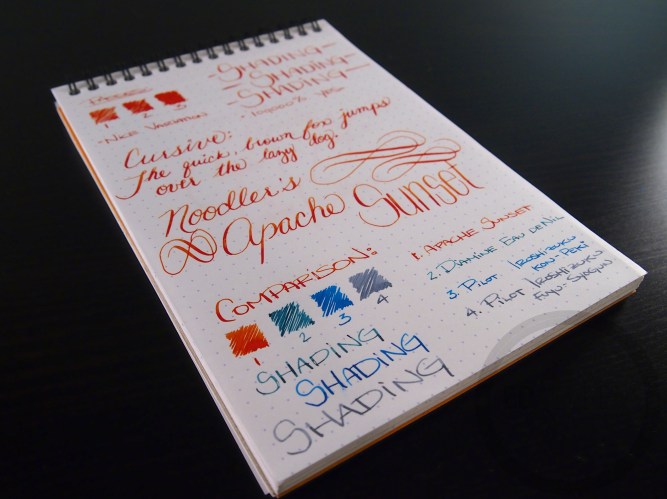 -SHADING-
-SHADING-
-SHADING-
YES
1 2 3
-NICE VARIATION
Cursive:
The quick, brown fox jumps
over the lazy dog.
Noodler's
Apache Sunset
COMPARISON:
1 2 3 4
1. APACHE SUNSET
2. DIAMINE EAU DE NIL
3. PILOT IROSHIZUKU
KON-PEKI
4. PILOT IROSHIZUKU
FUYU-SYOGUN
SHADING
SHADING
SHADING